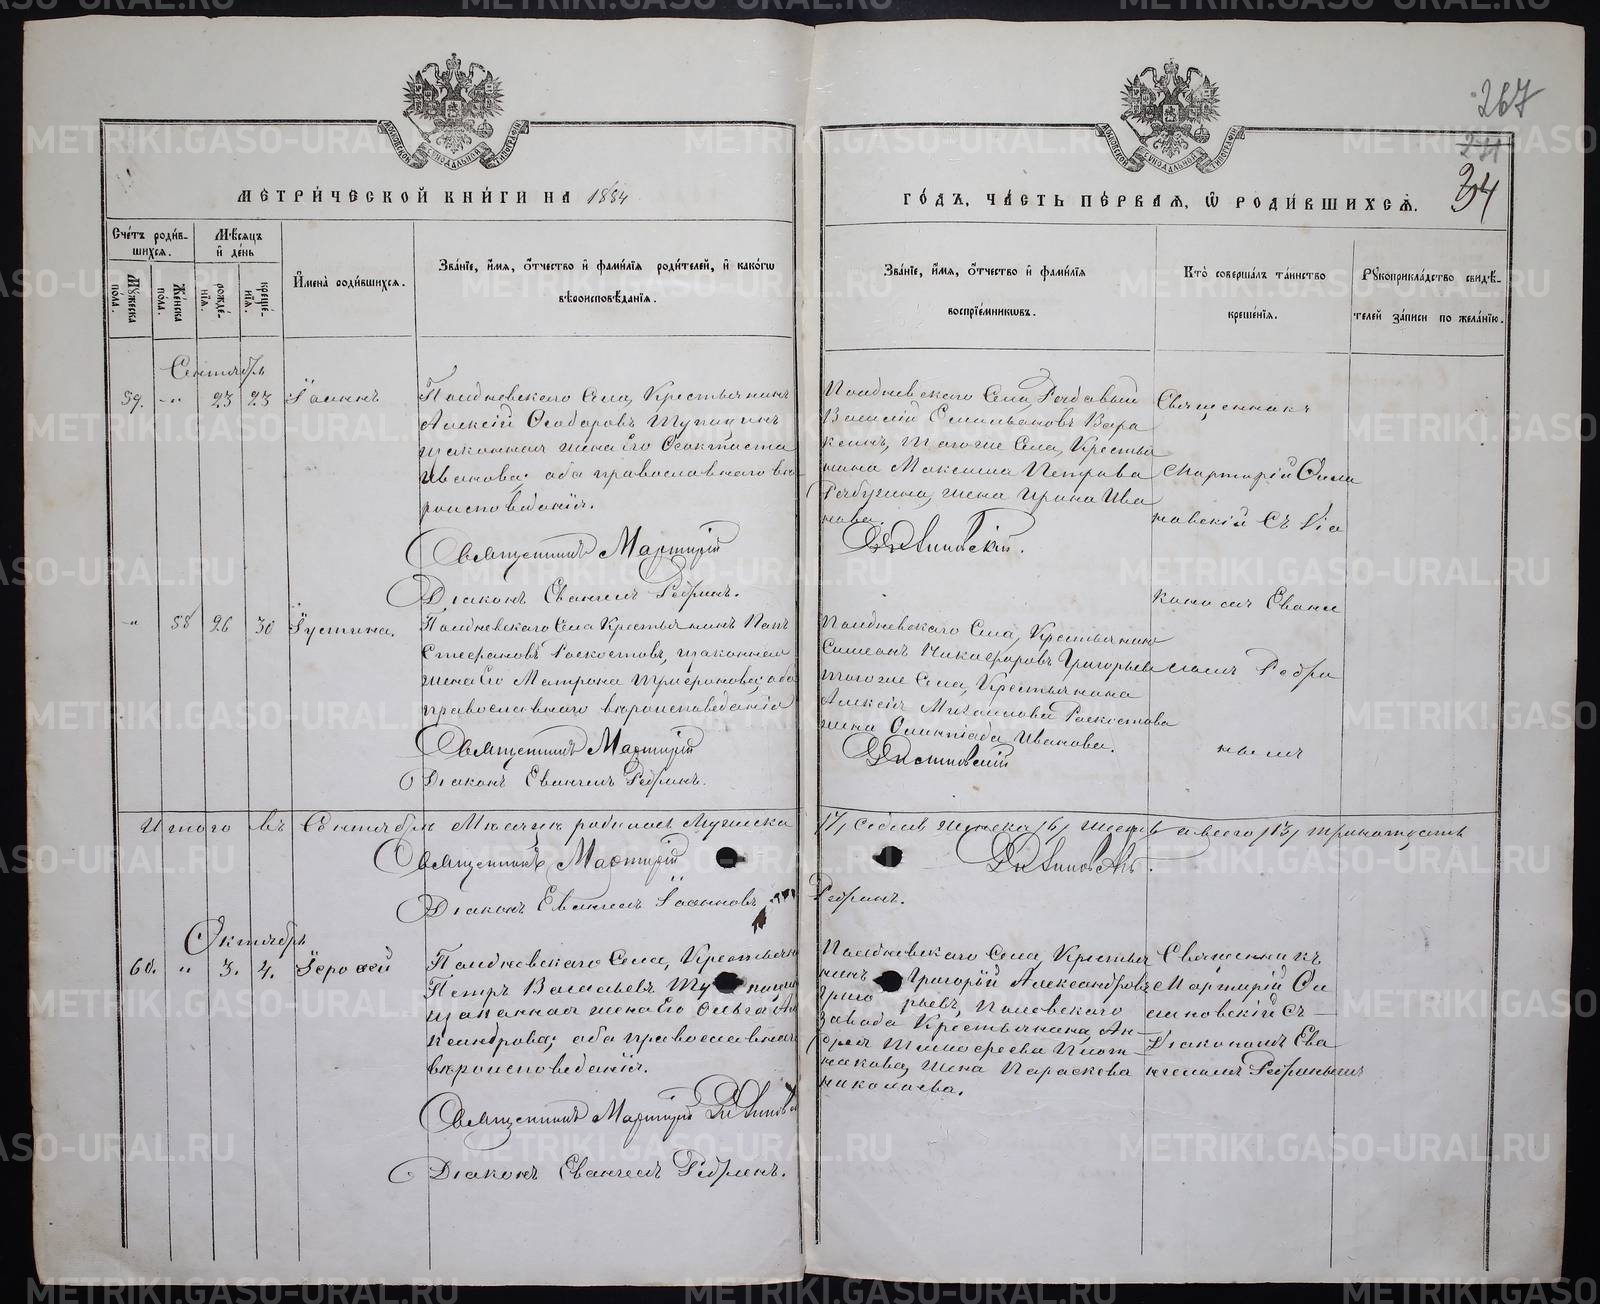 267
271
34
МОСКОВСКОЙ СѴНОДАЛЬНОЙ ТИПОГРАФІИ
МОСКОВСКОЙ СѴНОДАЛЬНОЙ ТИПОГРАФІИ
МЕТРИ́ЧЕСКОЙ КНИ́ГИ НА 1884
ГО́ДЪ, ЧА́СТЬ ПЕ́РВАЯ, Ѿ РОДИ́ВШИХСѦ.
Сче́тъ роди́в-
шихсѧ.
Му́жеска
пола.
Же́нска
пола.
Мѣ́сѧцъ
и́ де́нь
рожде́-
нїѧ.
креще́-
нїѧ.
И҆мена̀ роди́вшихсѧ.
Зва́нїе, и́мѧ, о́тчество и́ фами́лїѧ роди́телей, и́ како́гѡ
вѣроисповѣ́данїѧ.
Зва́нїе, и́мѧ, о́тчество и́ фами́лїѧ
воспрїе́мникѡвъ.
Кто̀ соверша́лъ та́инство
креще́нїѧ.
Рꙋкоприкла́дство свидѣ́-
телей за́писи по жела́нїю.
Сентябрь
59. -"- 23 23 Іоаннъ
Полдневскаго Села, Крестьянинъ
Алексѣй Ѳеодоровъ
законная жена Его Ѳеоктиста
Иванова; оба православнаго вѣ
роисповѣданія.
Священникъ Мартирій
Діаконъ Евангелъ Ребринъ.
Полдневскаго Села, Рядовый
Василій Емильяновъ Вара
кинъ, тогоже Села, Крестья
нина Максима Петрова
жена Ирина Ива
нова.
Священникъ
Мартирій Сима
новскій съ Діа
кономъ Еванге
ломъ Ребри
нымъ
-"- 58 26 30 Іустина.
Полдневскаго Села Крестьянинъ
Стефановъ Роскостовъ, законная
жена Его Матрона Трифонова; оба
православнаго вѣроисповѣданія
Священникъ Мартирій
Діаконъ Евангелъ Ребринъ.
Полдневскаго Села, Крестьянинъ
Симеонъ Никифоровъ Григорьевъ
тогоже Села, Крестьянина
Алексѣя Михаилова Роскостова
жена Олимпіада Иванова.
Итого въ Сентябрѣ Мѣсяцѣ родилось Мужеска /7/ Седмь женска /6/ шесть а всего /13/ тринатцать
Священникъ Мартирій
Діаконъ Евангелъ Іоанновъ Ребринъ.
Октябрь
60. " 3. 4. Іерофей
Полдневскаго Села, Крестьянинъ
Петръ Васильевъ
законная жена Его Ольга Але
ксандрова; оба православнаго
вѣроисповѣданія.
Священникъ Мартирій Симановскій
Діаконъ Евангелъ Ребринъ.
Полдневскаго Села, Крестья
нинъ Григорій Александровъ
Григорьевъ, Полевскаго
завода Крестьянина, Ан-
дрея Тимофеева Плот
никова, жена Параскева
николаева.
Священникъ
Мартирій Си
мановскій съ
Діакономъ Ева
нгеломъ Ребринымъ
METRIKI.GASO-URAL.RU